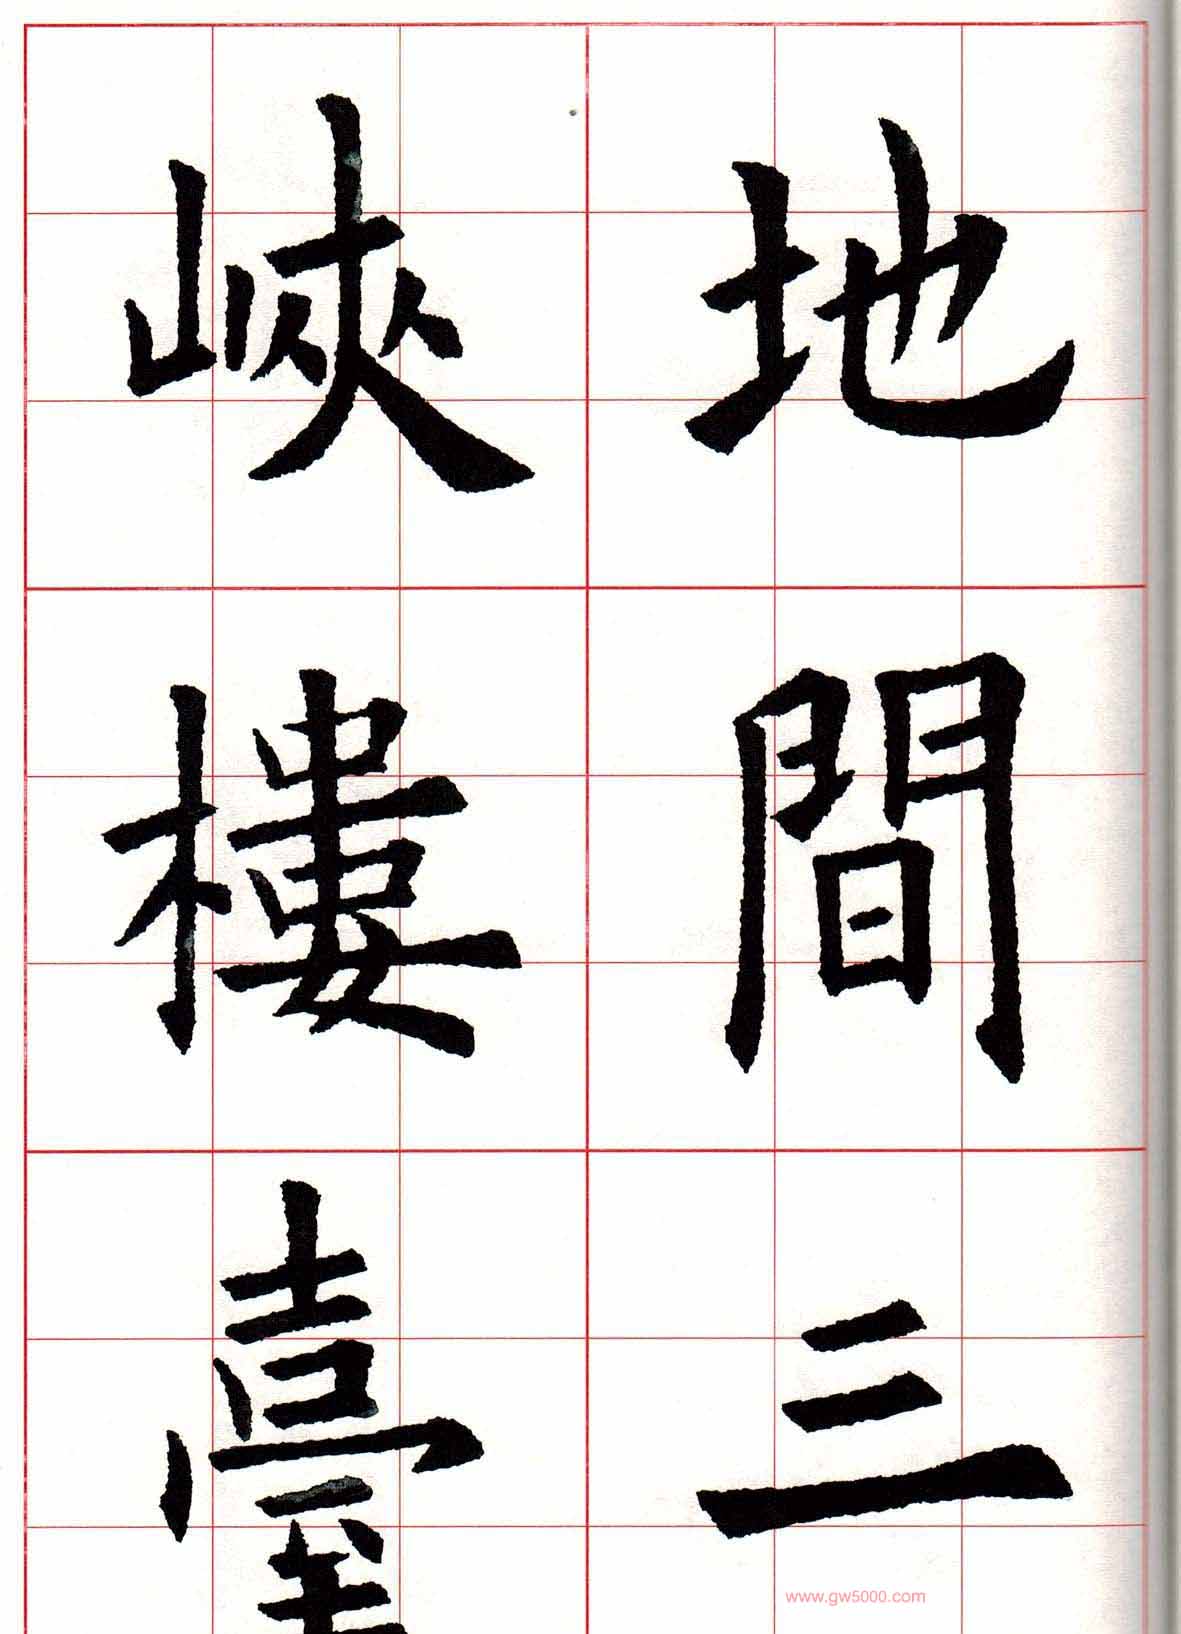 地間三
峽樓臺
www.gw5000.com